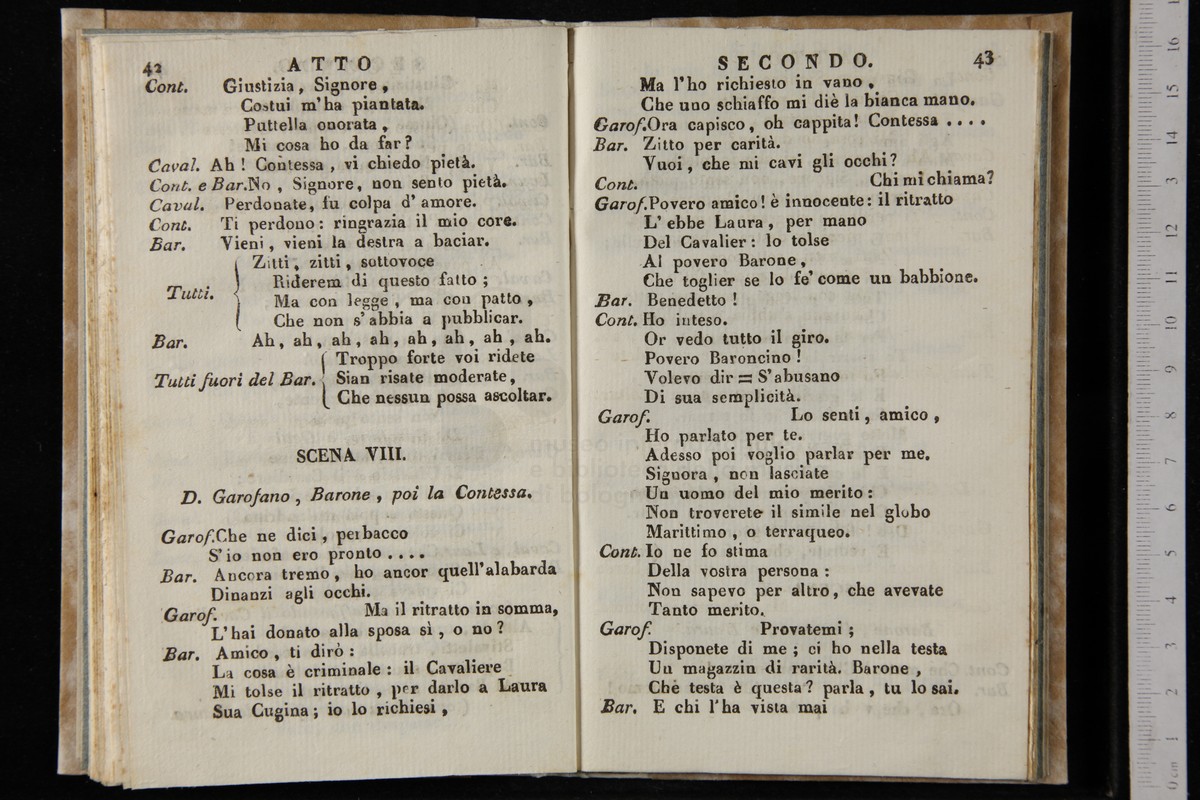 42 ATTO
Cont. Giustizia, Signore,
Costui m'ha piantata.
Puttella onorata,
Mi cosa ho da far?
Caval. Ah! Contessa, vi chiedo pietà.
Cont. e Bar. No, Signore, non sento pietà.
Caval. Perdonate, fu colpa d'amore.
Cont. Ti perdono: ringrazia il mio core.
Bar. Vieni, vieni la destra a baciar.
Zitti, zitti, sottovoce
Riderem di questo fatto;
Tutti. Ma con legge, ma con patto,
Che non s'abbia a pubblicar.
Bar. Ah, ah, ah, ah, ah, ah, ah, ah.
Troppo forte voi ridete
Tutti fuori del Bar. Sian risate moderate,
Che nessun possa ascoltar.
SCENA VIII.
D. Garofano, Barone, poi la Contessa.
Garof. Che ne dici, perbacco
S'io non ero pronto ....
Bar. Ancora tremo, ho ancor quell'alabarda
Dinanzi agli occhi.
Garof. Ma il ritratto in somma,
L'hai donato alla sposa sì, o no?
Bar. Amico, ti dirò:
La cosa è criminale: il Cavaliere
Mi tolse il ritratto, per darlo a Laura
Sua Cugina; io lo richiesi,
SECONDO. 43
Ma l'ho richiesto in vano,
Che uno schiaffo mi diè la bianca mano.
Garof. Ora capisco, oh cappita! Contessa ....
Bar. Zitto per carità.
Vuoi, che mi cavi gli occhi?
Cont. Chi mi chiama?
Garof. Povero amico! è innocente: il ritratto
L'ebbe Laura, per mano
Del Cavalier: lo tolse
Al povero Barone,
Che toglier se lo fe' come un babbione.
Bar. Benedetto!
Cont. Ho inteso.
Or vedo tutto il giro.
Povero Baroncino!
Volevo dir = S'abusano
Di sua semplicità.
Garof. Lo senti, amico,
Ho parlato per te.
Adesso poi voglio parlar per me.
Signora, non lasciate
Un uomo del mio merito:
Non troverete il simile nel globo
Marittimo, o terraqueo.
Cont. Io ne fo stima
Della vostra persona:
Non sapevo per altro, che avevate
Tanto merito.
Garof. Provatemi;
Disponete di me; ci ho nella testa
Un magazzin di rarità. Barone,
Che testa è questa? parla, tu lo sai.
Bar. E chi l'ha vista mai